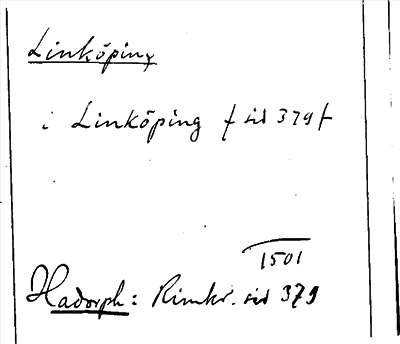 Linköping
i Linköping f sid 379 f
1501
Hadorph: Rimkr. sid 379